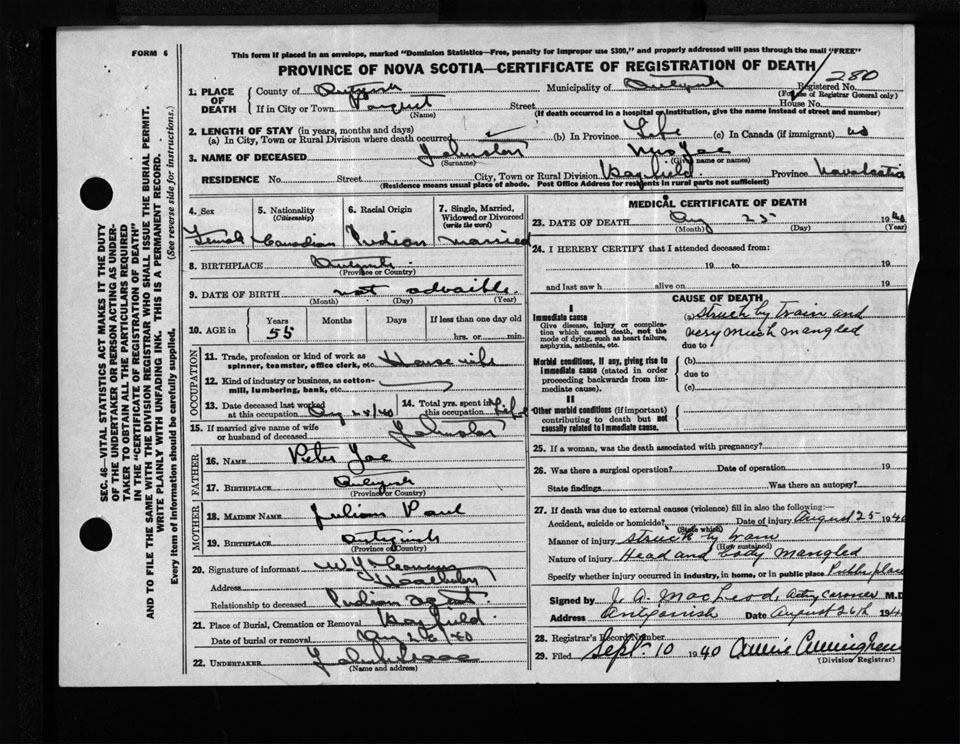 FORM 6
This form if placed in an envelope, marked "Dominion Statistics—Free, penalty for improper use $300," and properly addressed will pass through the mail "FREE"
PROVINCE OF NOVA SCOTIA—CERTIFICATE OF REGISTRATION OF DEATH
280
1. PLACE OF DEATH
County of
Municipality of
Registered No.
(For use of Registrar General only)
If in City or Town
(Name)
Street
House No.
(If death occurred in a hospital or institution, give the name instead of street and number)
2. LENGTH OF STAY (in years, months and days)
(a) In City, Town or Rural Division where death occurred
(b) In Province Life
(c) In Canada (if immigrant)
3. NAME OF DECEASED
(Surname)
Mrs Joe
(Given name or names)
RESIDENCE No. Street City, Town or Rural Division Bayfield Province Nova Scotia
(Residence means usual place of abode. Post Office Address for residents in rural parts not sufficient)
4. Sex
Female
5. Nationality
(Citizenship)
Canadian
6. Racial Origin
Indian
7. Single, Married, Widowed or Divorced
(write the word)
married
8. BIRTHPLACE
(Province or Country)
9. DATE OF BIRTH not
(Month) (Day) (Year)
10. AGE in
Years
55
Months
Days
If less than one day old
hrs. or min.
OCCUPATION
11. Trade, profession or kind of work as spinner, teamster, office clerk, etc. House wife
12. Kind of industry or business, as cotton-mill, lumbering, bank, etc.
13. Date deceased last worked at this occupation Aug 24/40
14. Total yrs. spent in this occupation Life
15. If married give name of wife or husband of deceased
FATHER
16. NAME Peter Joe
17. BIRTHPLACE
(Province or Country)
MOTHER
18. MAIDEN NAME Julian Paul
19. BIRTHPLACE
(Province or Country)
20. Signature of informant
Address
Relationship to deceased Indian agent
21. Place of Burial, Cremation or Removal Bayfield
Date of burial or removal Aug 26/40
22. UNDERTAKER
(Name and address)
MEDICAL CERTIFICATE OF DEATH
23. DATE OF DEATH Aug 25 1940
(Month) (Day) (Year)
24. I HEREBY CERTIFY that I attended deceased from:
19 to 19
and last saw h alive on 19
CAUSE OF DEATH
I
Immediate cause
Give disease, injury or complication which caused death, not the mode of dying, such as heart failure, asphyxia, asthenia, etc.
(a) Struck by train and
very much mangled
due to
Morbid conditions, if any, giving rise to immediate cause (stated in order proceeding backwards from immediate cause).
(b)
due to
(c)
II
Other morbid conditions (if important) contributing to death but not causally related to immediate cause.
25. If a woman, was the death associated with pregnancy?
26. Was there a surgical operation? Date of operation 19
State findings Was there an autopsy?
27. If death was due to external causes (violence) fill in also the following:—
Accident, suicide or homicide? Date of injury August 25 1940
(State which)
Manner of injury Struck by train
(How sustained)
Nature of injury Head and body mangled
Specify whether injury occurred in industry, in home, or in public place Public place
Signed by J. A. MacLeod, Acting Coroner M.D.
Address Antigonish Date August 26th 1940
28. Registrar's Record Number
29. Filed Sept 10 1940
(Division Registrar)
SEC. 46—VITAL STATISTICS ACT MAKES IT THE DUTY
OF THE UNDERTAKER OR PERSON ACTING AS UNDER-
TAKER TO OBTAIN ALL THE PARTICULARS REQUIRED
IN THE "CERTIFICATE OF REGISTRATION OF DEATH"
AND TO FILE THE SAME WITH THE DIVISION REGISTRAR WHO SHALL ISSUE THE BURIAL PERMIT.
WRITE PLAINLY WITH UNFADING INK. THIS IS A PERMANENT RECORD.
Every item of information should be carefully supplied. (See reverse side for instructions.)